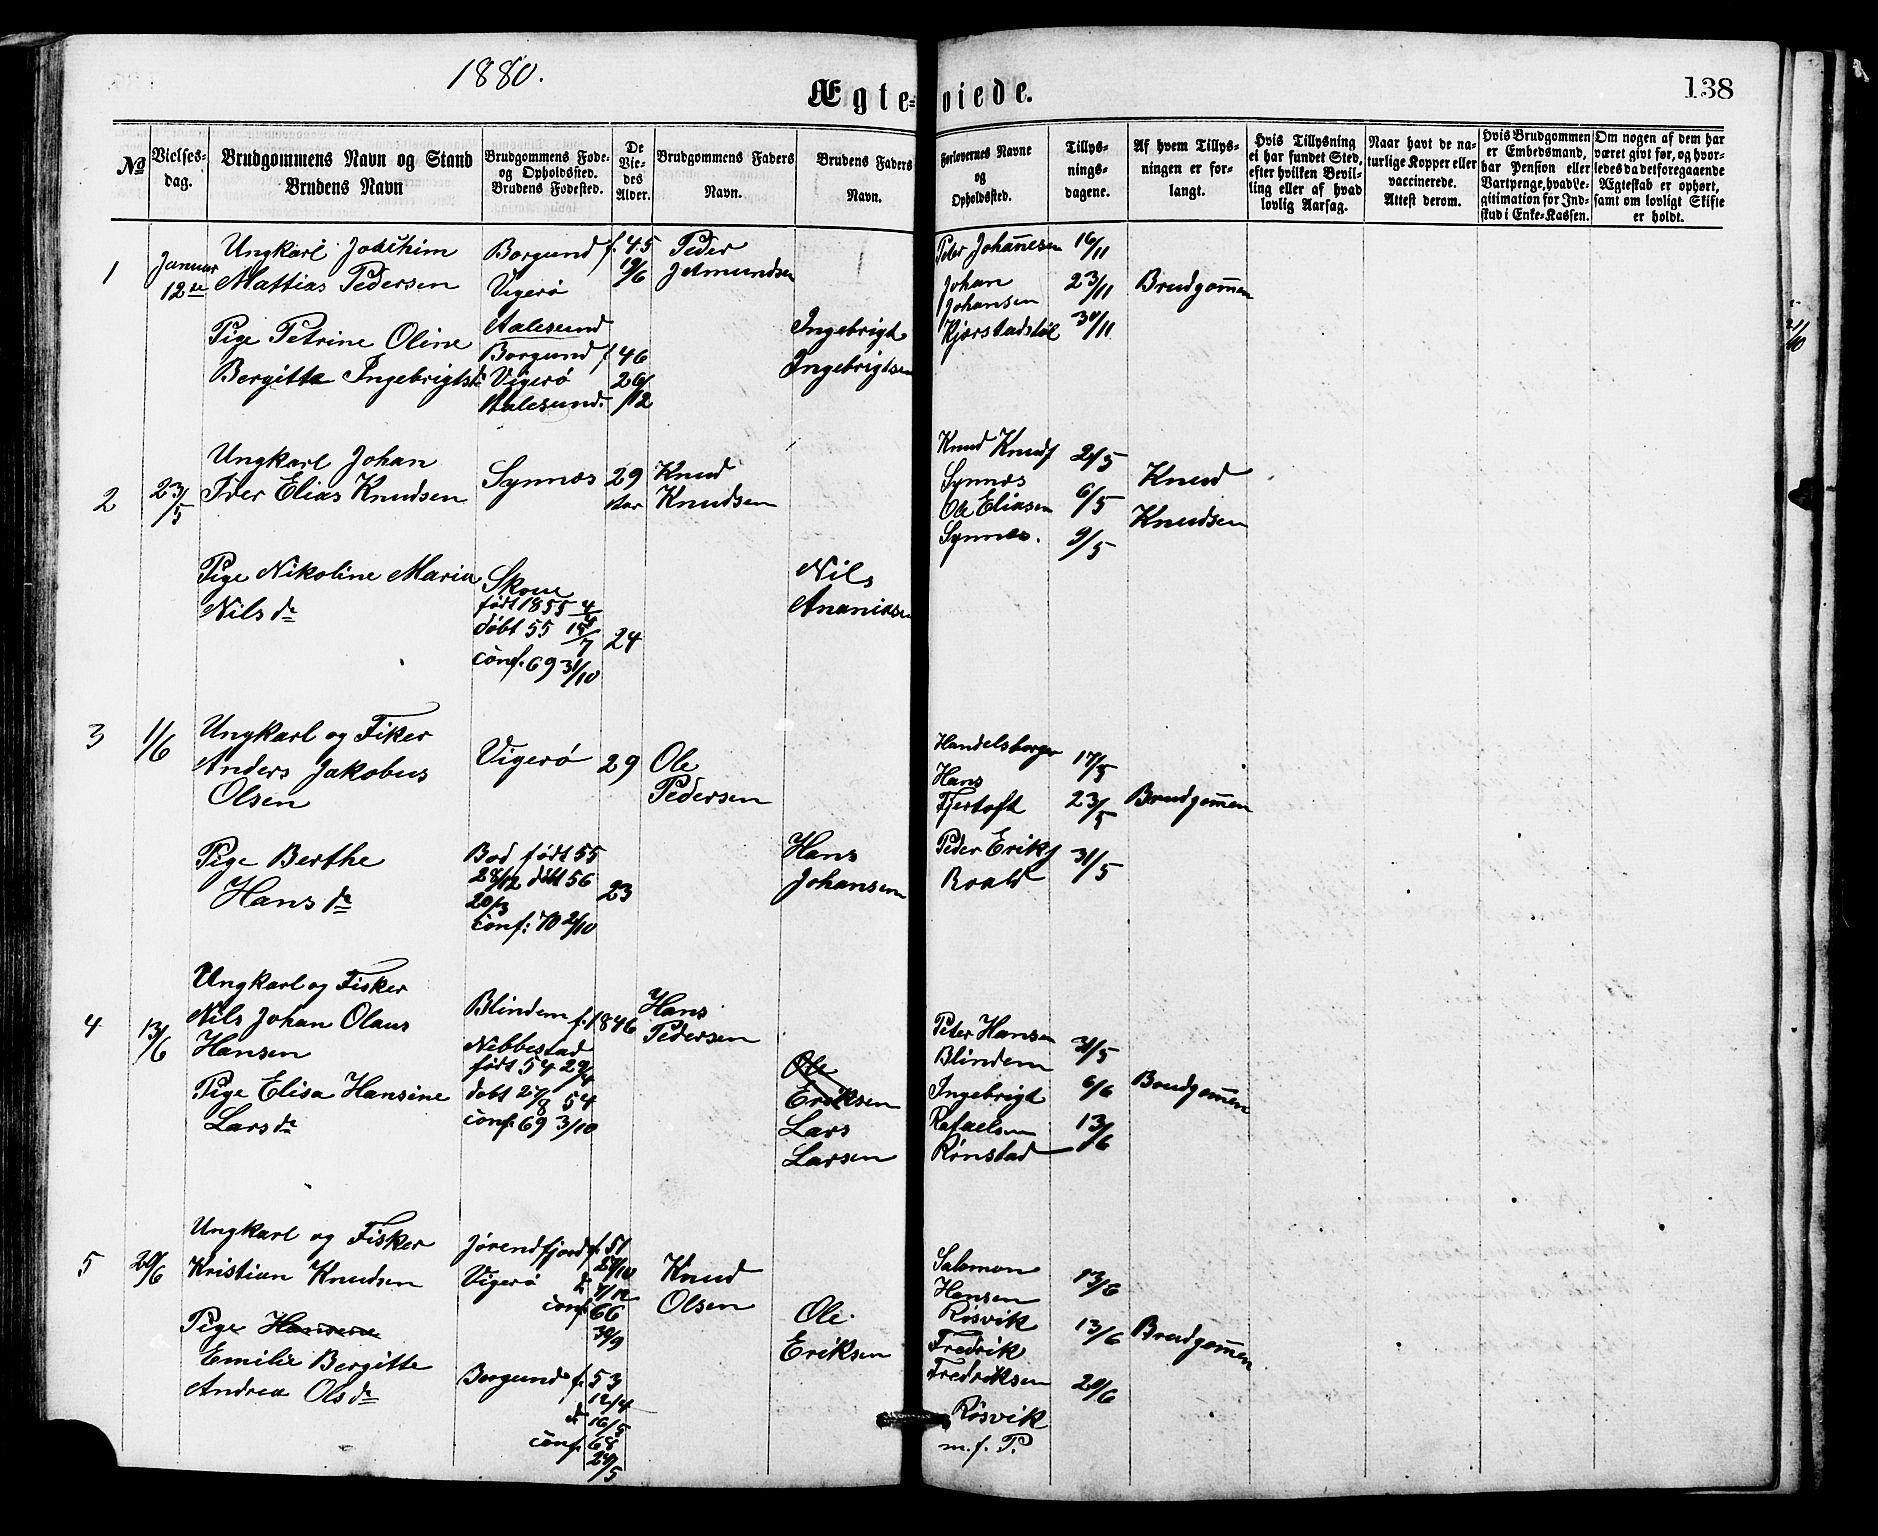 1880.
Ægteviede.
138
No
Vielses-
dag.
Brudgommens Navn og Stand
Brudens Navn
Brudgommens Føde-
og Opholdssted.
Brudens Fødested.
De
Vie-
des
Alder.
Brudgommens Faders
Navn.
Brudens Faders
Navn.
Forlovernes Navne
og
Opholdssted.
Tillys-
nings-
dagene.
Af hvem Tillys-
ningen er for-
langt.
Hvis Tillysning
ei har fundet Sted,
efter hvilken Bevil-
ling eller af hvad
lovlig Aarsag.
Naar havt de na-
turlige Kopper eller
vaccinerede.
Attest derom.
Hvis Brudgommen
er Embedsmand,
har Pension eller
Vartpenge, hvad Le-
gitimation for Ind-
skud i Enke-Kassen.
Om nogen af dem har
været givt før, og hvor-
ledes da det foregaaende
Ægteskab er ophørt,
samt om lovligt Skifte
er holdt.
1
Januar
12te
Ungkarl Joachim
Mattias Pedersen
Borgund
Vigerø
Aalesund
f. 45
19/6
Peder
Jetmundsen
Pige Petrine Oline
Bergitte Ingebrigtsd
Borgund
Vigerø
Aalesund.
f 46
26/12
Ingebrigt
Ingebrigtsen
Peter Johannesen
Johan
Johansen
Kjørstadstøl
16/11
23/11
30/11
Brudgommen
2
23/5
Ungkarl Johan
Peder Elias Knudsen
Synnæs
29
Aar
Knud
Knudsen
Pige Nikoline Maria
Nils dr
født 1855
døbt 55 15/7
conf. 69 31/10
24
Nils
Ananiasen
Knud Knuds
Synnæs
Ole Eliasen
Synnæs.
2/5
6/5
9/5
Knud
Knudsen
3
1/6
Ungkarl og Fiker
Anders Jakobus
Olsen
Vigerø
29
Ole
Pedersen
Pige Berthe
Hans dr
Bod født 55
28/12 døbt 56
20/3
conf: 70 2/10
23
Hans
Johansen
Handelsborger
Hans
Fjertoft
Peder Eriks
Roald
17/5
23/5
31/5
Brudgommen
4
13/6
Ungkarl og Fisker
Nils Johan Olaus
Hansen
Blindem
f. 1846
Hans
Pedersen
Pige Elisa Hansine
Lars dr
Nebbestad
født 54 29/4
døbt 27/8 54
conf. 69 3/10
Ole
Eriksen
Lars
Larsen
Peter Hansen
Blindem
Ingebrigt
Rafaelsen
Rønstad
31/5
6/6
13/6
Brudgommen
5
20/6
Ungkarl og Fisker
Kristian Knudsen
Jørendfjord
Vigerø
f. 51
27/10
d 7/12
conf. 66
30/9
Knud
Olsen
Pige Hansine
Emilie Bergitte
Andrea Ols dr
Borgund
f. 53
12/4
d 16/5
conf. 68
24/5
Ole
Eriksen
Salomon
Hansen
Røsvik
Fredrik
Fredriksen
Røsvik
m. f. P.
13/6
13/6
20/6
Brudgommen